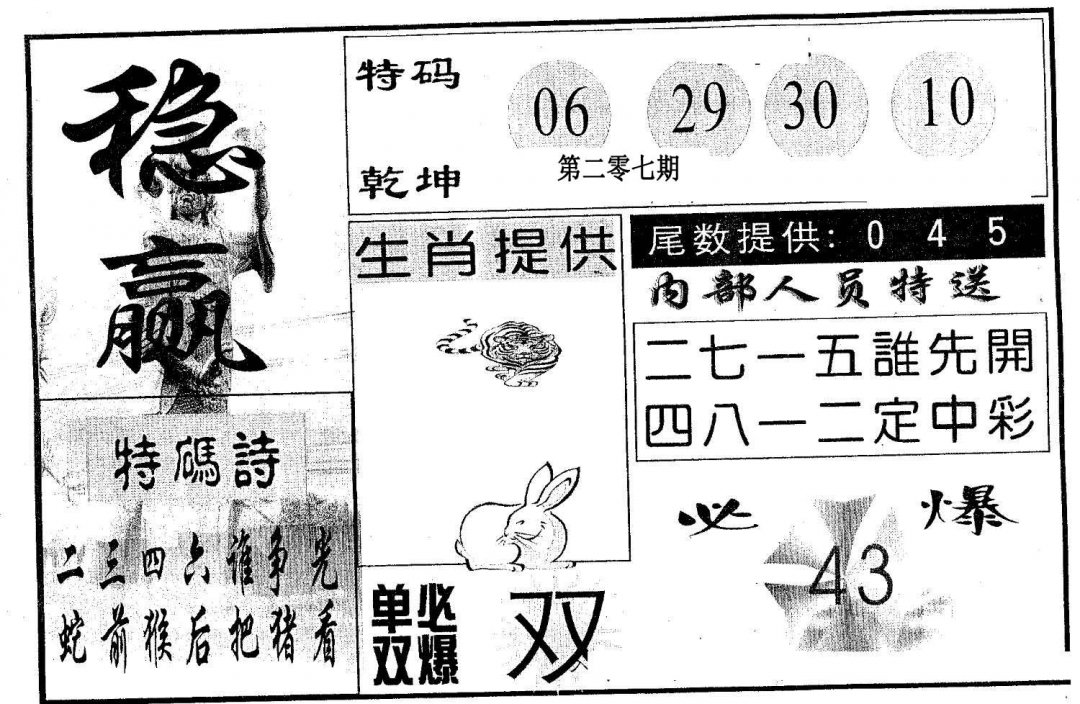 稳
赢
特码
乾坤
06 29 30 10
第二零七期
生肖提供
尾数提供: 0 4 5
内部人员特送
二七一五誰先開
四八一二定中彩
特碼詩
二三四六谁争光
蛇前猴后把猪看
单双
必爆
双
必爆
43